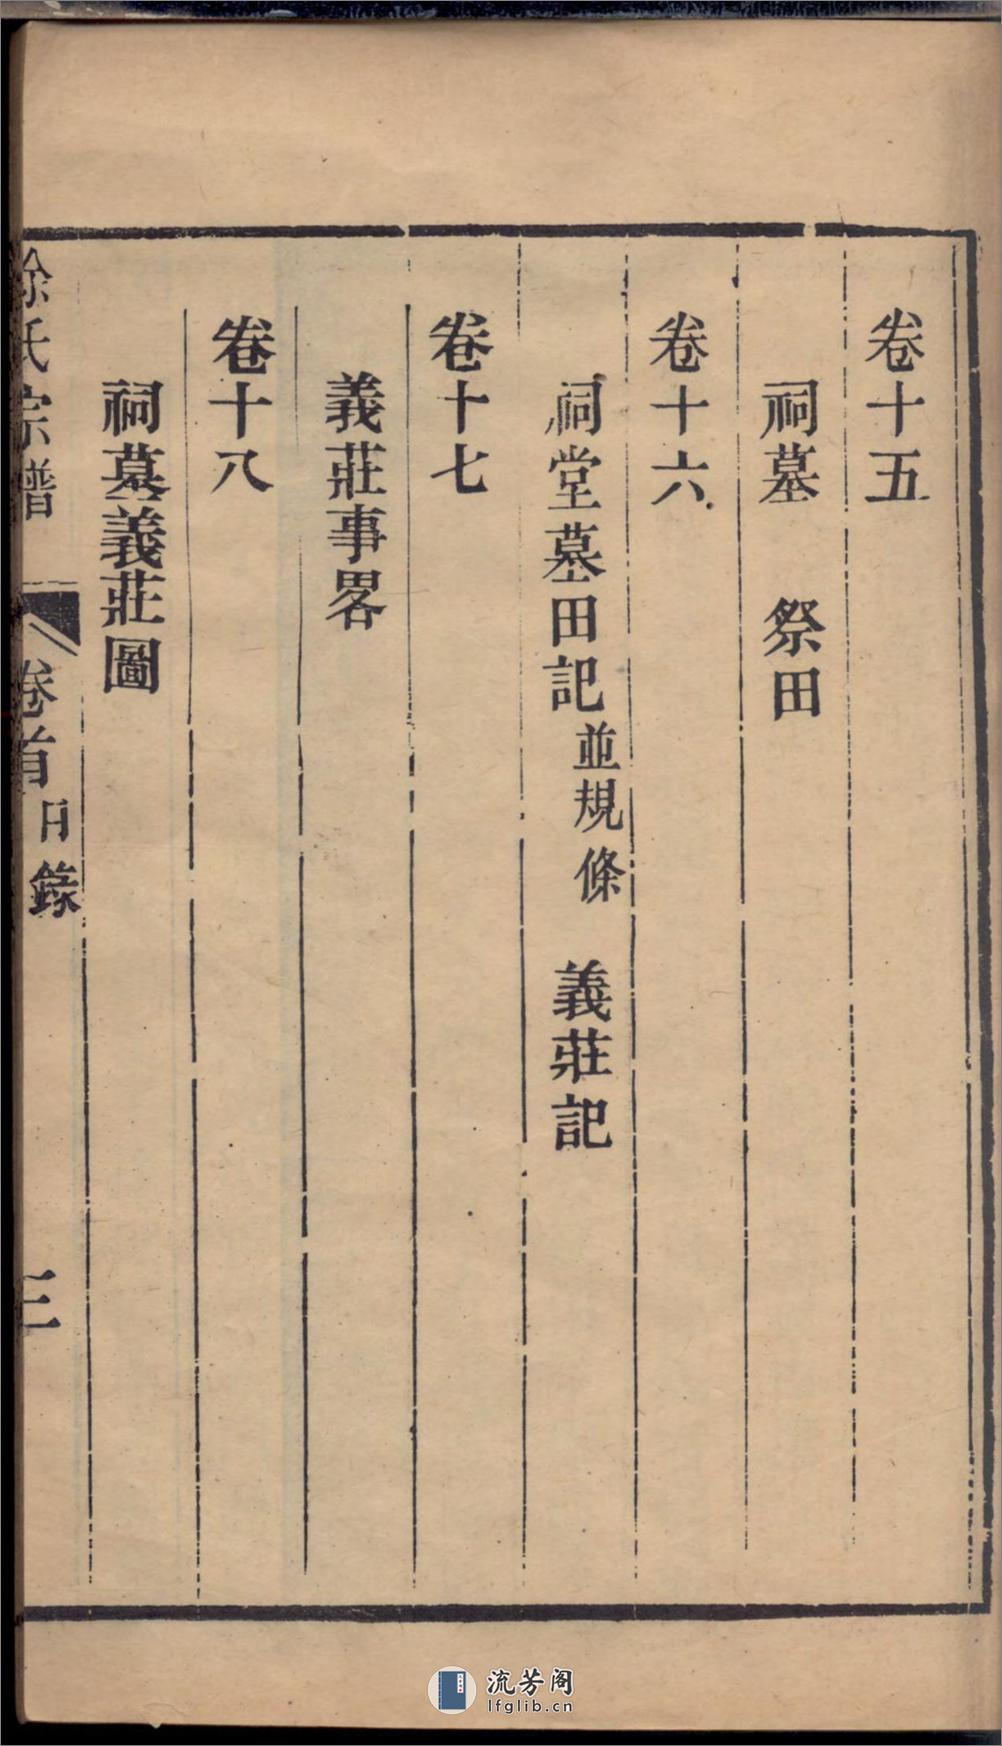 卷十五
祠墓　祭田
卷十六
祠堂墓田記並規條　義莊記
卷十七
義莊事畧
卷十八
祠墓義莊圖
徐氏宗譜　卷首目錄　三
流芳阁
lfglib.cn